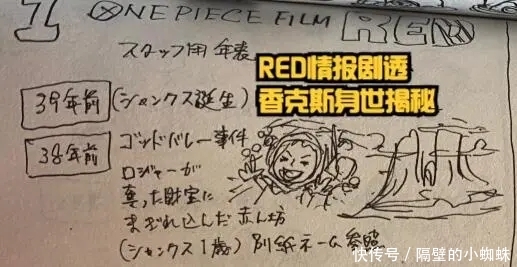 1 ONE PIECE FILM RED
スタッフ用年表
RED情报剧透
香克斯身世揭秘
39年前 (シャンクス誕生)
38年前 ゴッドバレー事件
ロジャーが
奪った財宝に
まぎれ込んだ赤ん坊
(シャンクス1歳) 別紙ネーム参照
快传号/隔壁的小蜘蛛